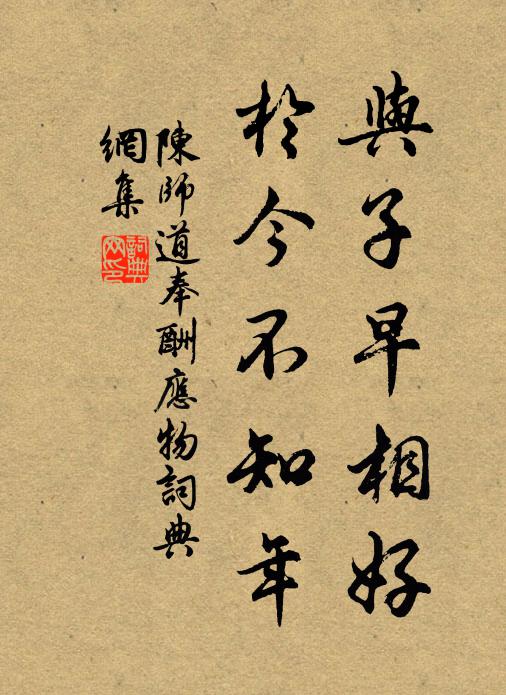 與子早相好
於今不知年
陳師道奉酬應物詞典
網集
詞典网印